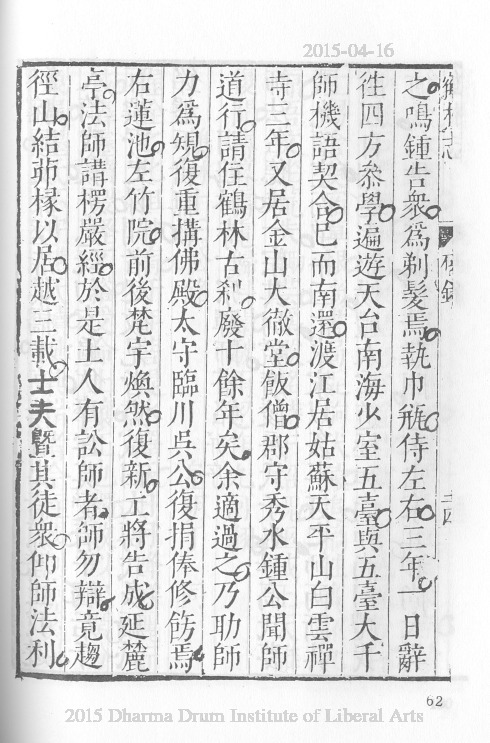 2015-04-16
之鳴鍾告衆爲剃髮焉執巾瓶侍左右三年一日辭
徃四方叅學遍遊天台南海少室五臺與五臺大千
師機語契合已而南還渡江居姑蘇天平山白雲禪
寺三年又居金山大徹堂飯僧郡守秀水鍾公聞師
道行請住鶴林古刹廢十餘年矣余適過之乃助師
力爲規復重搆佛殿太守臨川吳公復捐俸修飭焉
右蓮池左竹院前後梵宇煥然復新工將告成延麓
亭法師講楞嚴經於是土人有訟師者師勿辯竟趨
徑山結茆椽以居越三載士夫曁其徒衆仰師法利
62
2015 Dharma Drum Institute of Liberal Arts